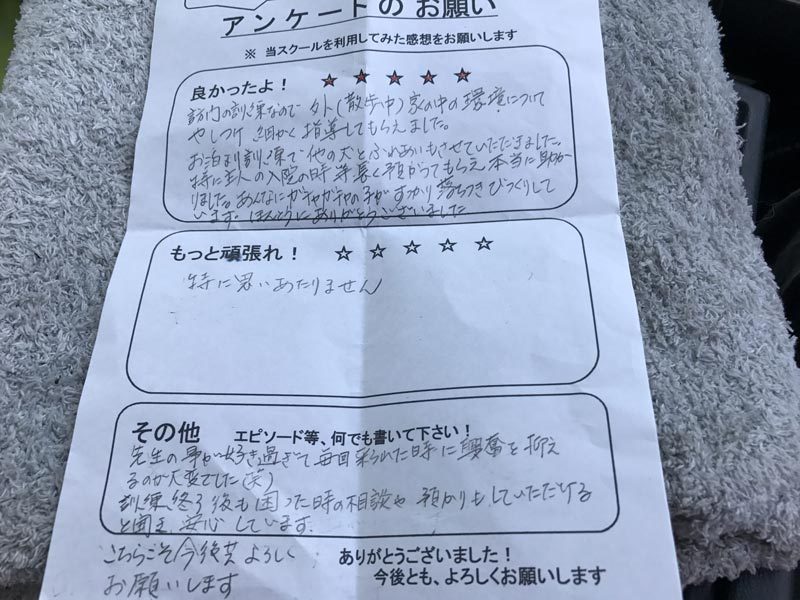 アンケートのお願い
※ 当スクールを利用してみた感想をお願いします
良かったよ！ ★ ★ ★ ★ ★
訪内の訓練なので 外(散歩中) 家の中の環境について
やしつけ 細かく 指導してもらえました。
お泊まり訓練で他の犬とふれあいもさせていただきました。
特に主人の入院の時 半長く預かってもらえ 本当に助か
りました。あんなにガチャガチャの子が すっかり落ちつき びっくりして
います。ほんとうにありがとうございました
もっと頑張れ！ ☆ ☆ ☆ ☆ ☆
特に思いあたりません
その他 エピソード等、何でも書いて下さい！
先生の事が好き過ぎて 毎回来られた時に興奮を抑え
るのが大変でした(笑)
訓練終了後も困った時の相談や 預かりもしていただける
と聞き 安心しています。
こちらこそ今後共よろしく
お願いします
ありがとうございました！
今後とも、よろしくお願いします